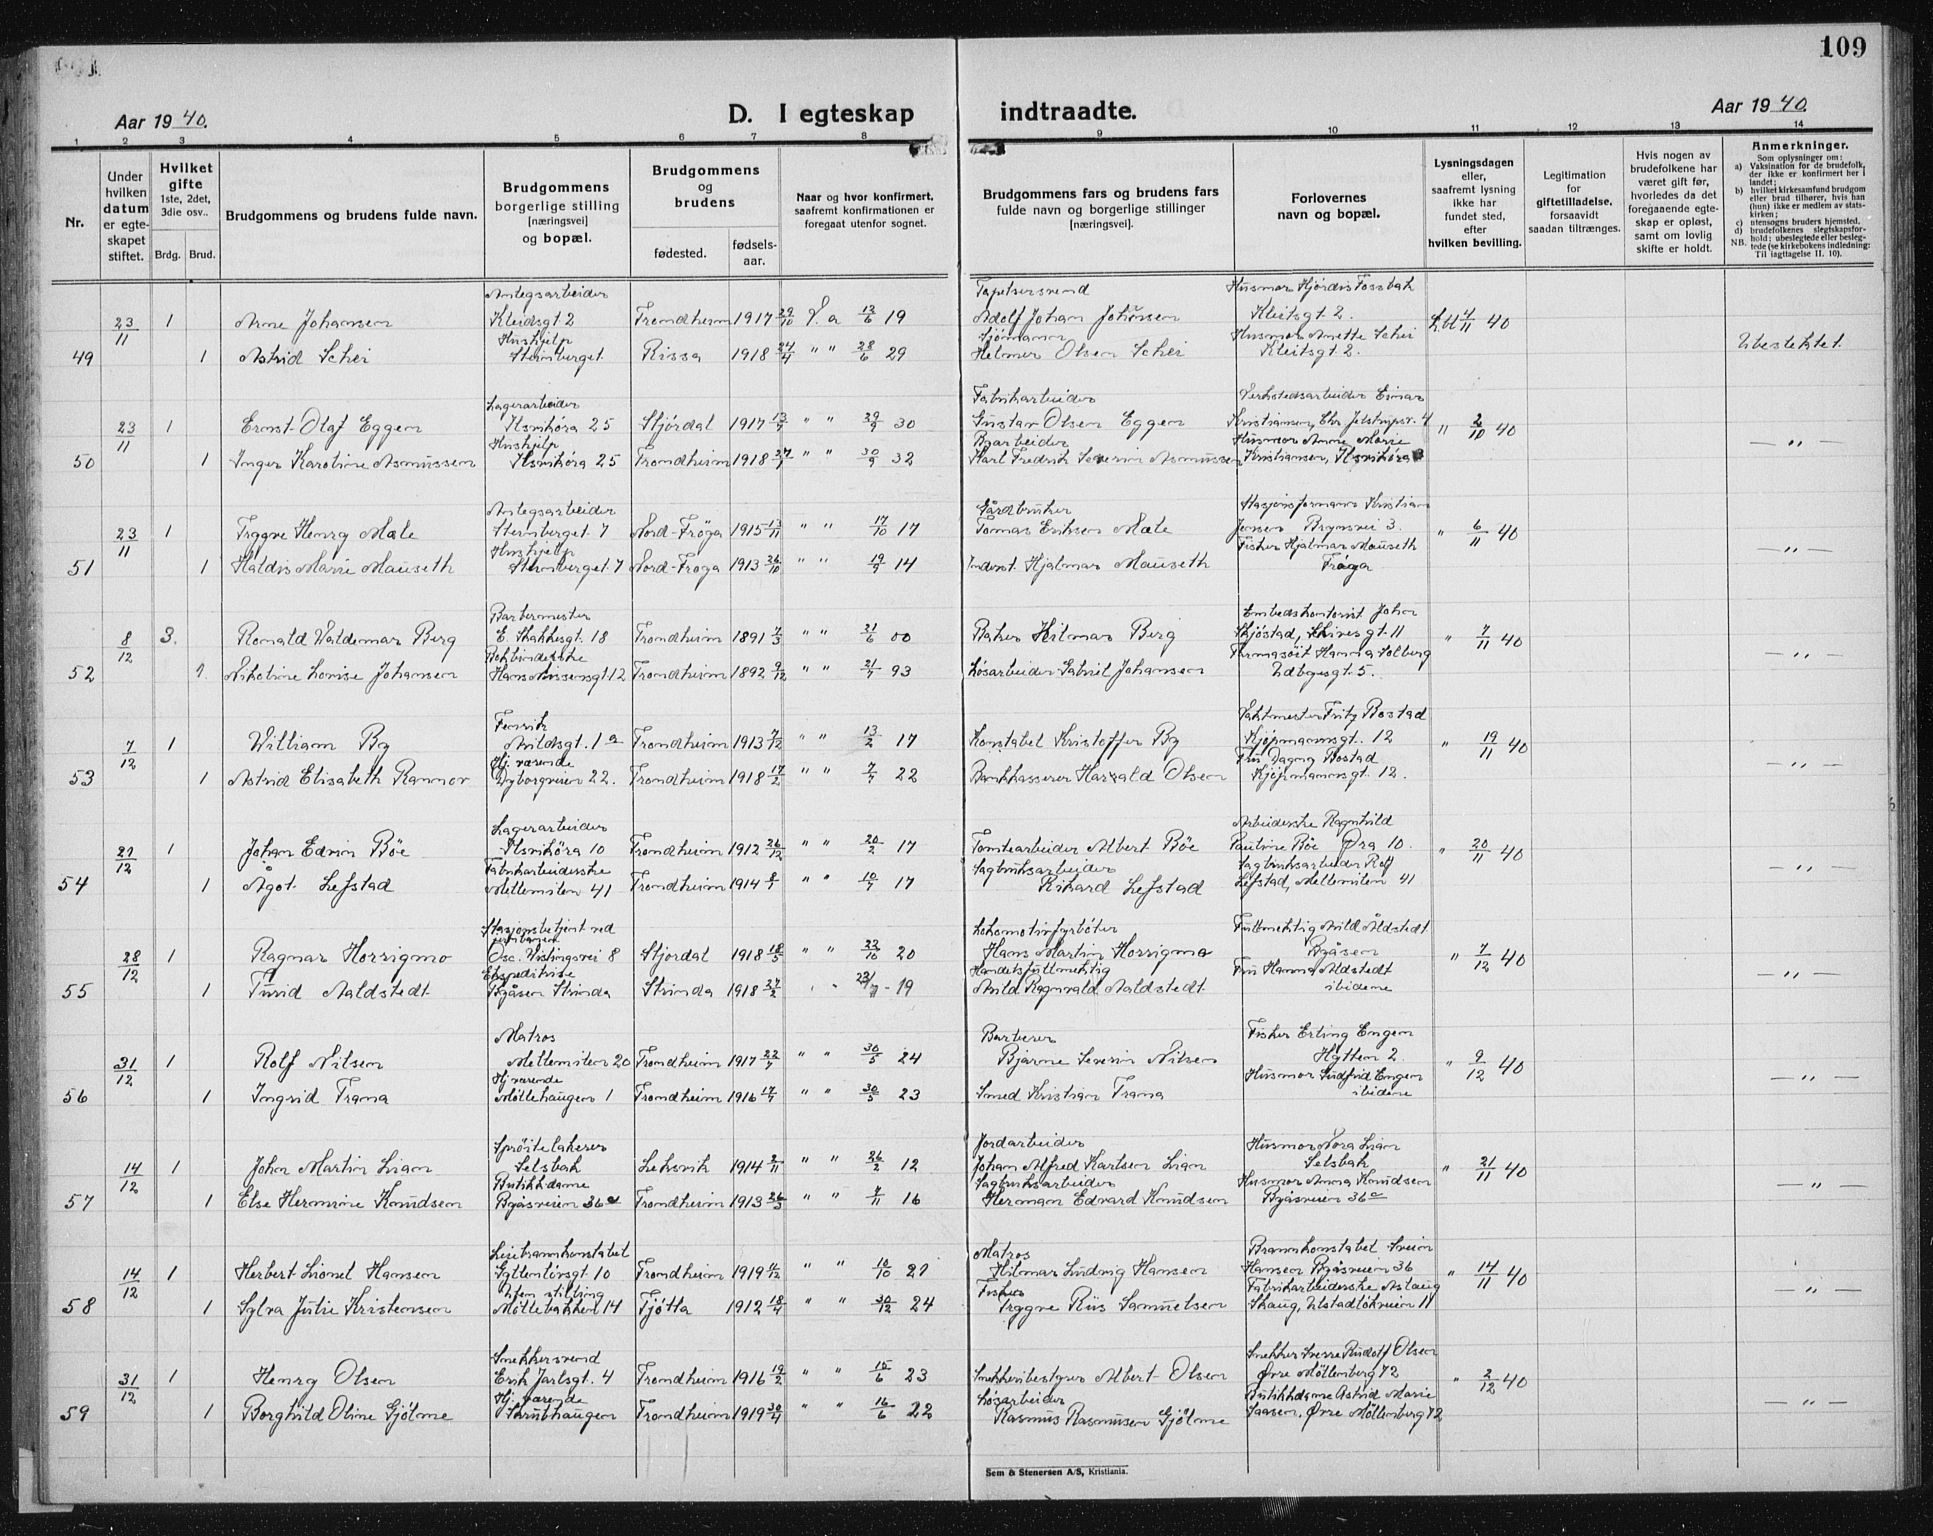 109
Aar 1940.
D. I egteskap indtraadte.
Aar 1940.
1 2 3 4 5 6 7 8 9 10 11 12 13 14
Nr.
Under hvilken datum er egteskapet stiftet.
Hvilket gifte 1ste, 2det, 3die osv..
Brdg. Brud.
Brudgommens og brudens fulde navn.
Brudgommens borgerlige stilling [næringsvei] og bopæl.
Brudgommens og brudens
fødested. fødselsaar.
Naar og hvor konfirmert, saafremt konfirmationen er foregaat utenfor sognet.
Brudgommens fars og brudens fars fulde navn og borgerlige stillinger [næringsvei].
Forlovernes navn og bopæl.
Lysningsdagen eller, saafremt lysning ikke har fundet sted, efter hvilken bevilling.
Legitimation for giftetilladelse, forsaavidt saadan tiltrænges.
Hvis nogen av brudefolkene har været gift før, hvorledes da det foregaaende egteskap er opløst, samt om lovlig skifte er holdt.
Anmerkninger.
Som oplysninger om:
a) Vaksination for de brudefolk, der ikke er konfirmert her i landet;
b) hvilket kirkesamfund brudgom eller brud tilhører, hvis han (hun) ikke er medlem av statskirken;
c) utensogns bruders hjemsted.
d) brudefolkenes slegtskapsforhold; ubeslegtede eller beslegtede (se kirkebokens indledning:
NB. Til iagttagelse II. 10).
Anlegsarbeider Tapetsersvend Husmor Hjørdis Fossbak
23/11 1 Arne Johansen Kleistsgt 2 Trondheim 1917 29/10 13/6 19 Adolf Johan Johnsen Kleistsgt 2. 4/11 40
Hushjelp Sjømann Husmor Anette Schei
49 1 Astrid Schei Steinberget Rissa 1918 24/4 " " 28/6 29 Helmer Olsen Schei Kleistsgt 2. Ubeslektet.
Lagerarbeider Fabrikarbeider Verkstedsarbeider Einar
23/11 1 Ernst Olaf Eggen Ilsvikøra 25 Stjørdal 1917 13/7 " " 29/9 30 Gustav Olsen Eggen Kristiansen, Chr. Jelstrupsv. 4 " 40
Hushjelp Byarbeider Husmor Anne Marie
50 1 Inger Karoline Asmussen Ilsvikøra 25 Trondheim 1918 27/1 " " 30/9 32 Karl Fredrik Severin Asmussen Kristiansen, Ilsvikøra — " —
Anlegsarbeider Gårdbruker Stasjonsformann Kristian
23/11 1 Trygve Henry Mæle Steinberget 7 Nord-Frøya 1915 13/11 " " 17/10 17 Tomas Eriksen Mæle Jensen Brynsvei 3. " 6/11 40
Hushjelp Fisker Hjalmar Mauseth
51 1 Haldis Marie Mauseth Steinberget 7 Nord-Frøya 1913 26/10 " " 19/9 14 Hjalmar Mauseth Frøya — " —
Barbermester Embedskontorist John
8/12 3. Ronald Valdemar Berg E. Skakkesgt. 18 Trondheim 1891 7/3 " " 21/6 00 Baker Hilmar Berg Skjøstad, 11 " 7/11 40
Bokbinderske Hanna Solberg
52 1. Nikoline Lovise Johansen Hans Nissensgt. 12 Trondheim 1892 9/12 " " 21/7 93 Løsarbeider Gabriel Johansen Udbyesgt. 5. — " —
Fenrik Vaktmester Fritz Bostad
7/12 1 William By Arildsgt. 1a Trondheim 1913 7/12 " " 13/2 17 Konstabel Kristoffer By Kjøpmannsgt. 12 " 19/11 40
Hj. værende Fru Dagny Bostad
53 1 Astrid Elisabeth Rannov Dyborgveien 22. Trondheim 1918 17/2 " " 7/7 22 Bankkasserer Harald Olsen Kjøpmannsgt. 12. — " —
Lagerarbeider Arbeiderske Ragnhild
21/12 1 Johan Edvin Bøe Ilsvikøra 10 Trondheim 1912 26/12 " " 20/2 17 Tomtearbeider Albert Bøe Pauline Bøe Øra 10. " 20/11 40
Fabrikarbeiderske Sagbruksarbeider Sagbruksarbeider Rolf
54 1 Ågot Lefstad Mellemilen 41 Trondheim 1914 8/1 " " 10/7 17 Rikard Lefstad Lefstad, Mellemilen 41 — " —
Stasjonsbetjent ved jernbanen Lokomotivfyrbøter Fullmektig Arild Aldstedt
28/12 1 Ragnar Horrigmo Osc. Wistingsvei 8 Stjørdal 1918 18/5 " " 22/10 20 Hans Martin Horrigmo Byåsen " 7/12 40
Ekspeditrise Handelsfullmektig Fru Hanna Aldstedt
55 1 Turid Aaldstedt Byåsen Strinda Strinda 1918 27/2 " " 19 Arild Ragnvald Aaldstedt ibidene — " —
Matros Barberer Fisker Erling Engen
31/12 1 Rolf Nilsen Mellemilen 20 Trondheim 1917 22/7 " " 30/5 24 Bjarne Severin Nilsen Hytten 2. " 9/12 40
Hj. værende Husmor Gudfrid Engen
56 1 Ingrid Trana Møllehaugen 1 Trondheim 1916 17/7 " " 30/5 23 Smed Kristian Trana ibidene — " —
Sprøitelakerer Jordarbeider Husmor Nora Lian
14/12 1 John Martin Lian Selsbak Leksvik 1914 2/11 " " 26/2 12 Johan Alfred Karlsen Lian Selsbak " 21/11 40
Butikkdame Sagbruksarbeider Husmor Anna Knudsen
57 1 Else Hermine Knudsen Byåsveien 36c Trondheim 1913 26/3 " " 7/11 16 Herman Edvard Knudsen Byåsveien 36c — " —
Matros Brannkonstabel Svein
14/12 1 Herbert Lionel Hansen Gyllenløvsgt. 10 Trondheim 1919 " " 10/10 21 Hilmar Ludvig Hansen Hansen Byåsveien 36 " 14/11 40
Uten stilling Fisker Fabrikarbeiderske Aslaug
58 1 Sylva Julie Kristensen Møllebakken 14 Tjøtta 1912 18/4 " " 30/12 24 Trygve Riis Samuelsen Skaug, Ulstadløkveien 11 — " —
Snekkersvend Snekker Sverre Rudolf Olsen
31/12 1 Henry Olsen Erik Jarlsgt. 4 Trondheim 1916 19/2 " " 15/6 23 Snekkerbestyrer Albert Olsen Øvre Møllenberg 72 " 2/12 40
Hj. værende Løsarbeider Butikkdame Astrid Marie
59 1 Borghild Oline Gjølme Skrubhaugen Trondheim 1919 30/4 " " 16/6 22 Rasmus Rasmussen Gjølme Saasen, Øvre Møllenberg 72 — " —
Sem & Stenersen A/S, Kristiania.